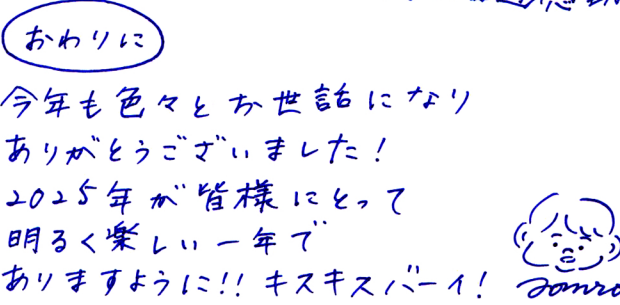 おわりに
今年も色々とお世話になり
ありがとうございました!
2025年が皆様にとって
明るく楽しい一年で
ありますように!! キスキスバーイ!